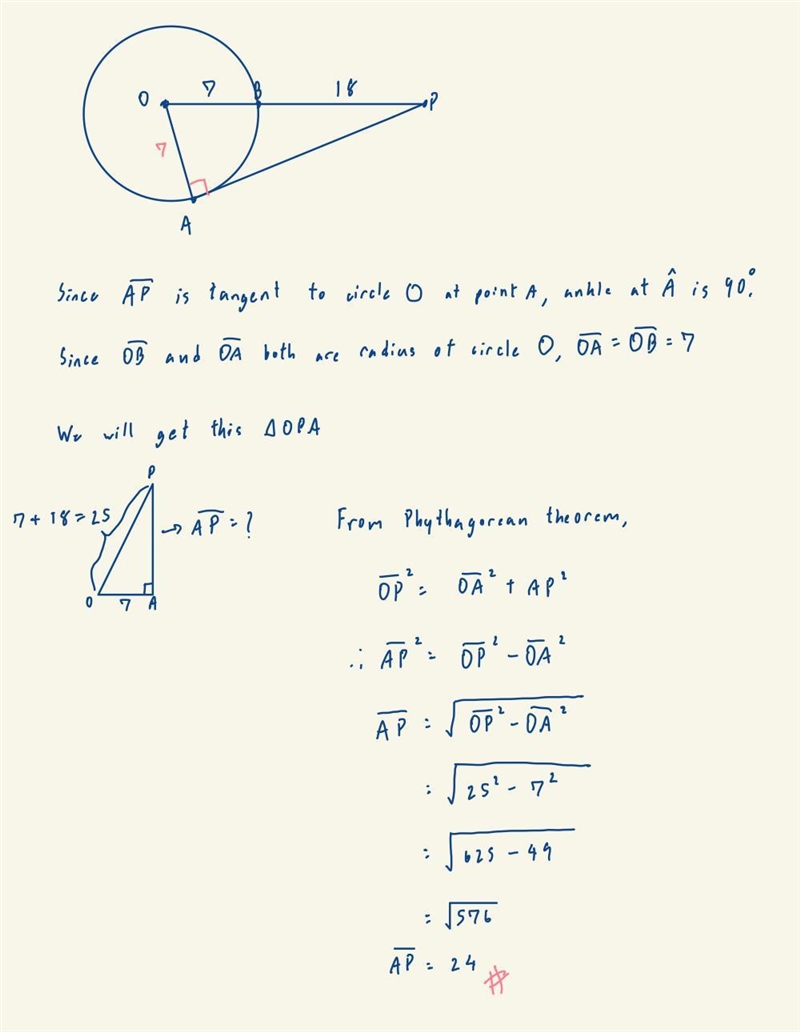 O 7 B 18 P
7
A
Since A̅P̅ is tangent to circle O at point A, anhle at Â is 90°.
Since O̅B̅ and O̅A̅ both are radius of circle O, O̅A̅ = O̅B̅ = 7
We will get this ΔOPA
P
7 + 18 = 25
→ A̅P̅ = ?
O 7 A
From Phythagorean theorem,
O̅P̅² = O̅A̅² + AP²
∴ A̅P̅² = O̅P̅² - O̅A̅²
A̅P̅ = √(O̅P̅² - O̅A̅²)
= √(25² - 7²)
= √(625 - 49)
= √576
A̅P̅ = 24 #